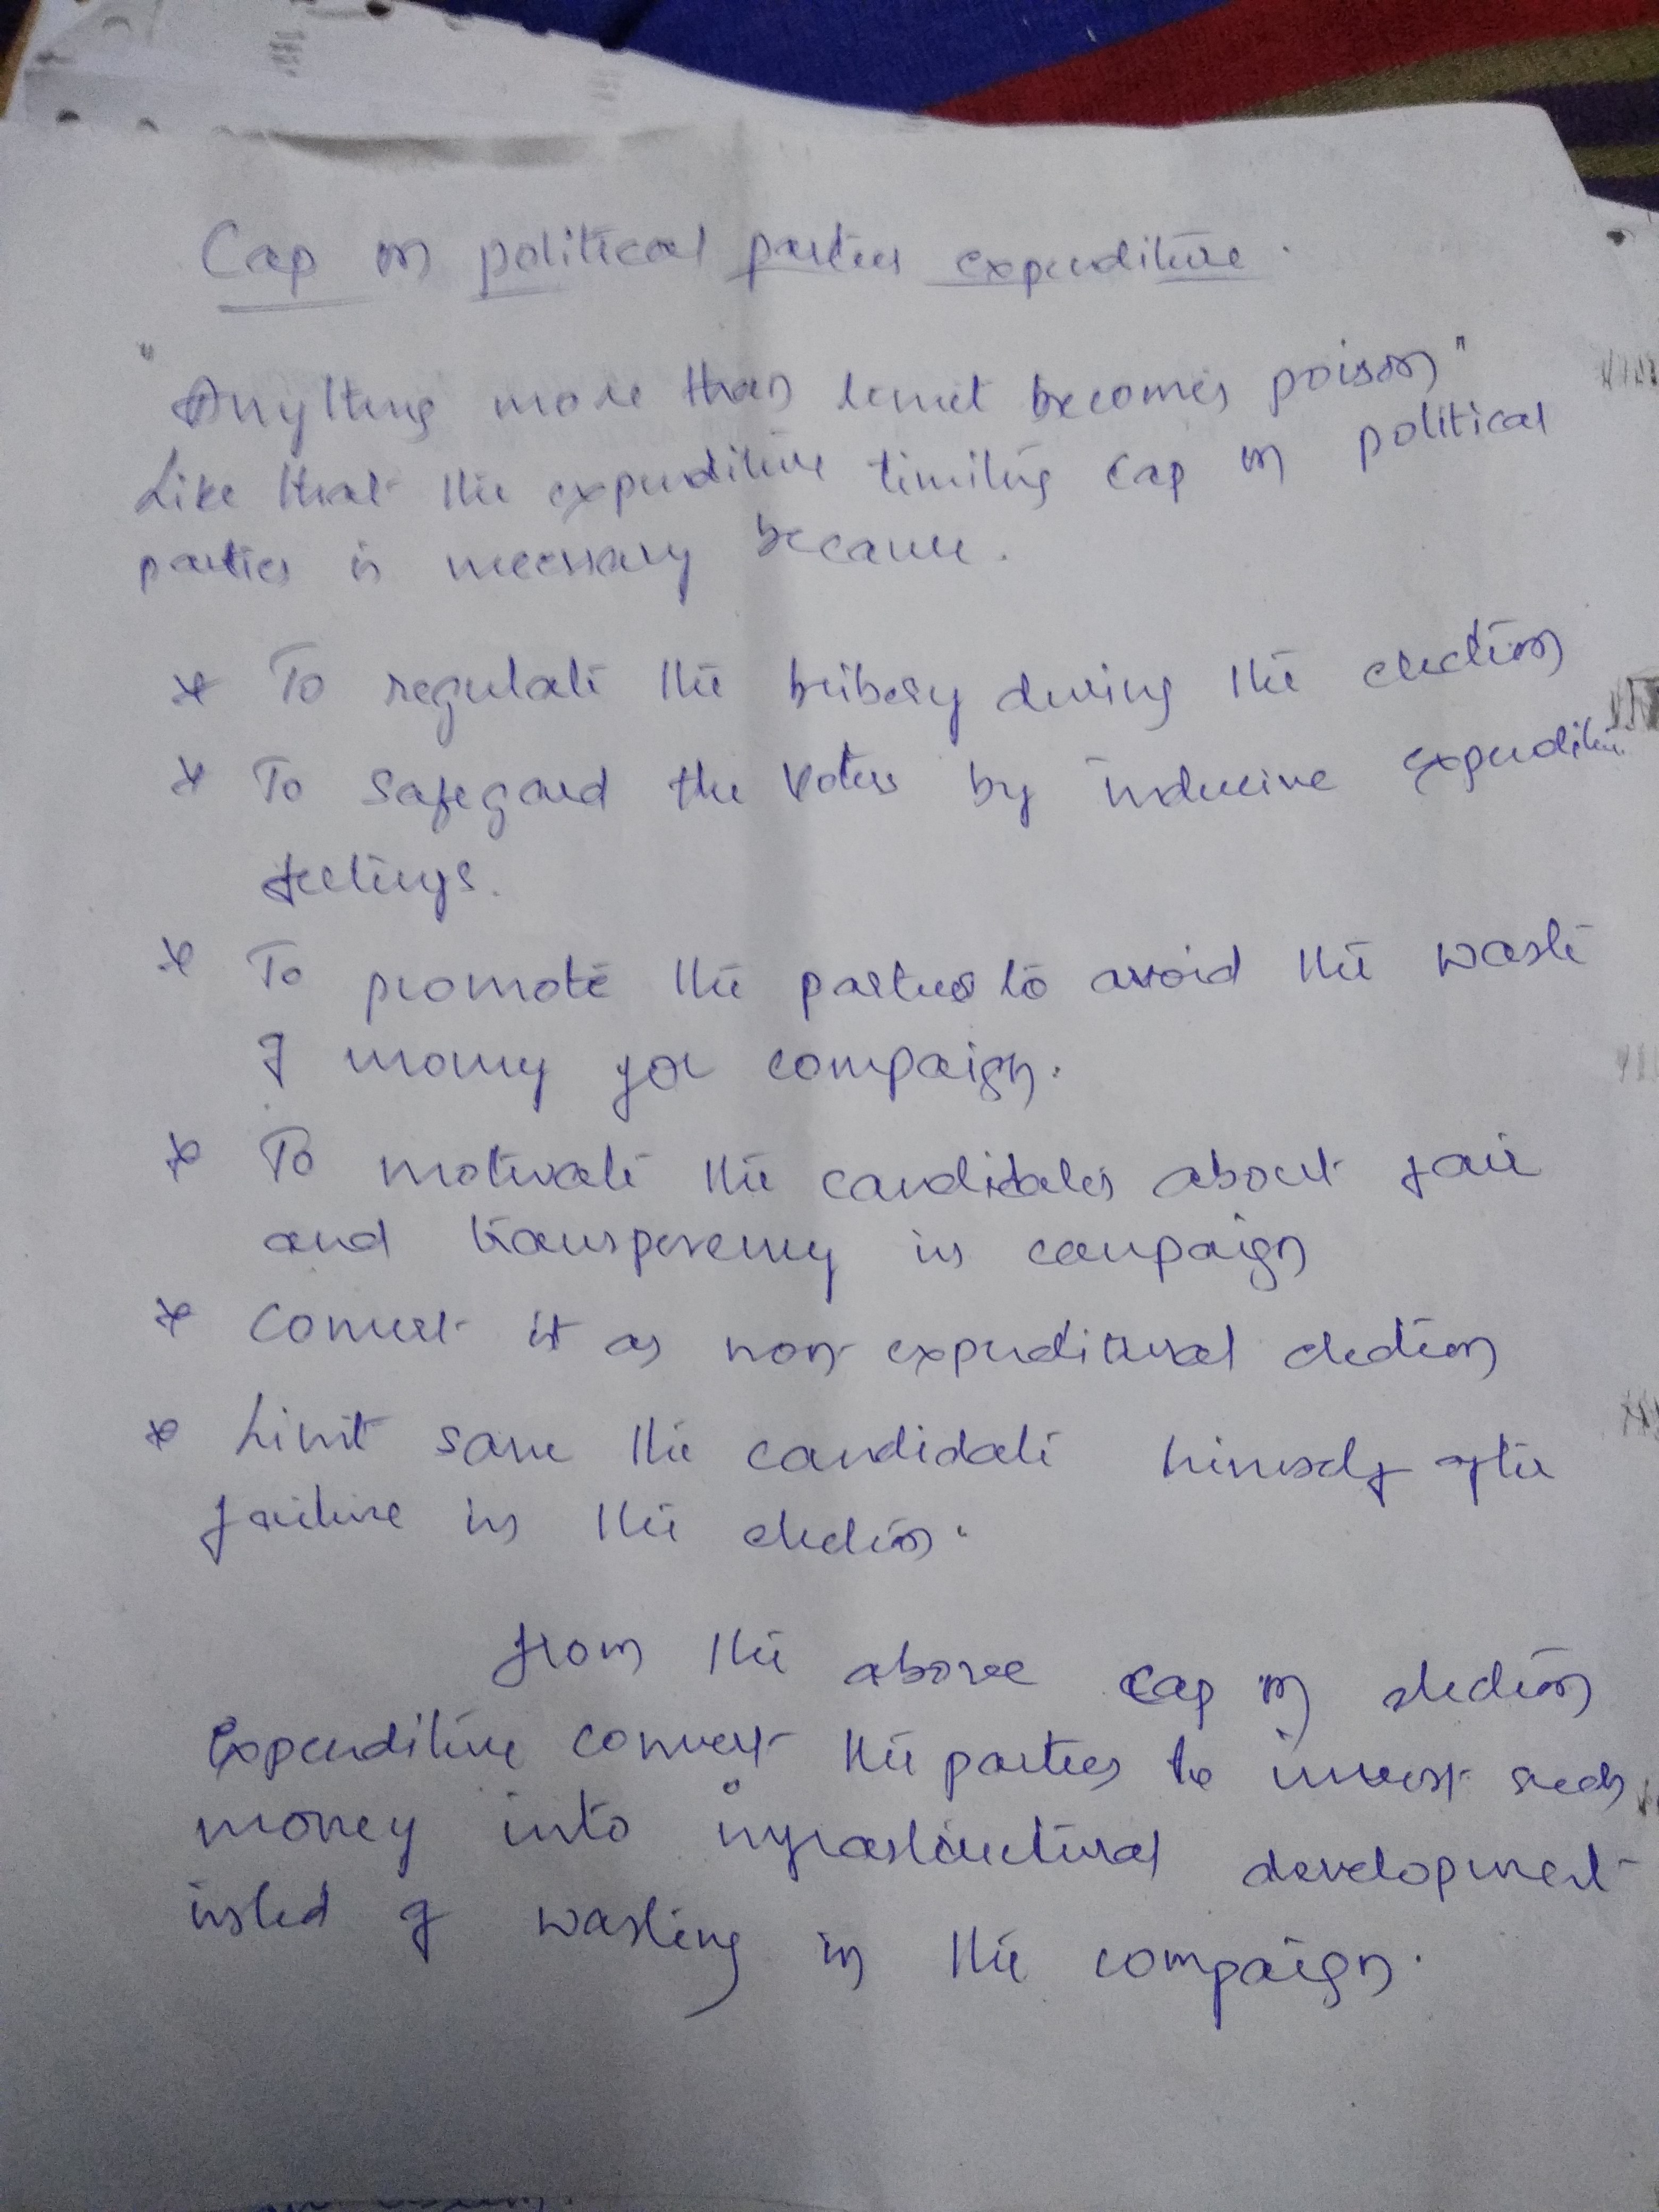 Cap on political parties expenditure.
"Anything more than limit becomes poison"
Like that the expenditure limiting cap on political
parties is necessary because.
* To regulate the bribery during the election
* To safegard the voters by inducive
feelings.
* To promote the parties to avoid the waste
of money for compaign.
* To motivate the candidates about fair
and transperency in campaign
* Convert it as non expenditural election
* Limit save the candidate himself after
failure in the election.
from the above cap on election
Expenditure convert the parties to invest such
money into infrastructural development
insted of wasting in the compaign.